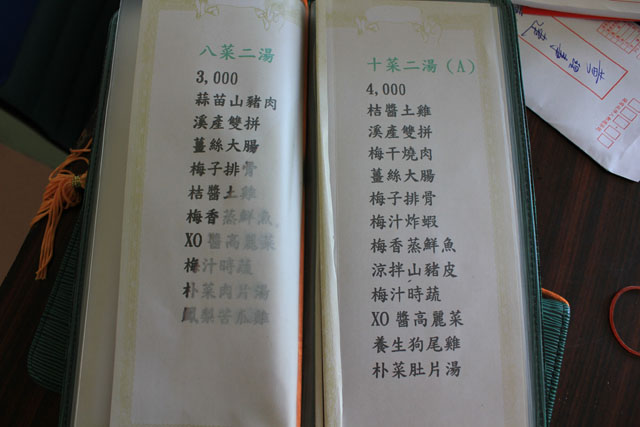 八菜二湯
3,000
蒜苗山豬肉
溪產雙拼
薑絲大腸
梅子排骨
桔醬土雞
梅香蒸鮮魚
XO 醬高麗菜
梅汁時蔬
朴菜肉片湯
鳳梨苦瓜雞
十菜二湯（A）
4,000
桔醬土雞
溪產雙拼
梅干燒肉
薑絲大腸
梅子排骨
梅汁炸蝦
梅香蒸鮮魚
涼拌山豬皮
梅汁時蔬
XO 醬高麗菜
養生狗尾雞
朴菜肚片湯